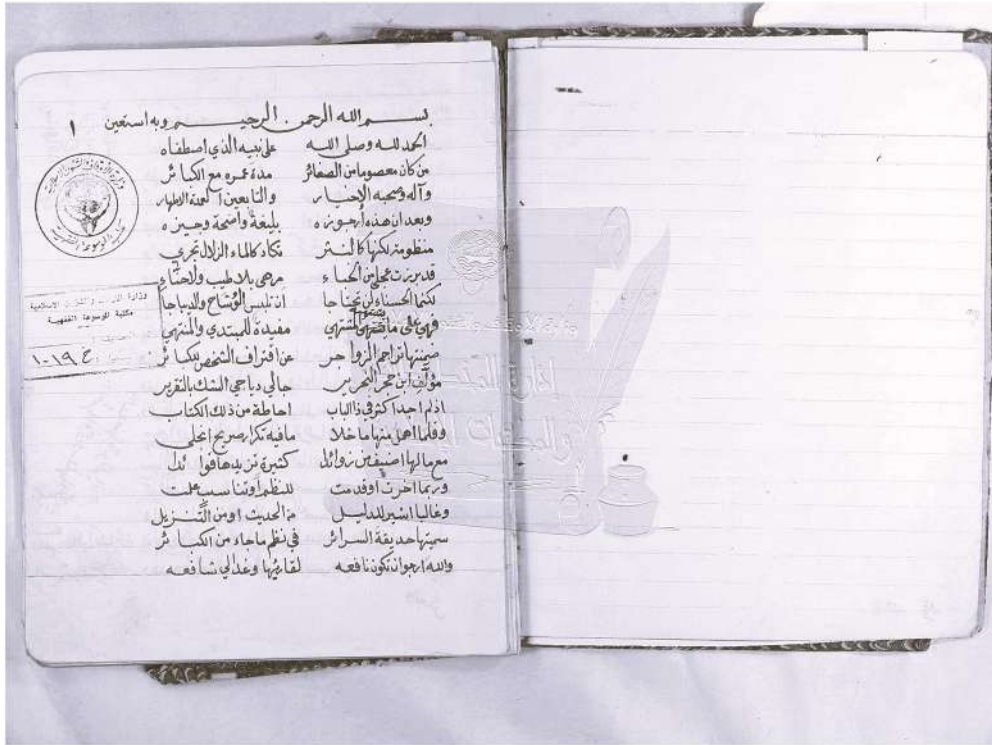 بسم الله الرحمن الرحيم وبه استعين
١
الحمد لله وصلى الله على نبيه الذي اصطفاه
من كان معصوما من الصغائر مدة عمره مع الكبائر
وآله وصحبه الاخيار والتابعين العمدة الاطهار
وبعد ان هذه أرجوزه بليغة واضحة وجيزه
منظومة لكنها كالنثر تكاد كالماء الزلال تجري
قد برزت تجلى من الخباء مرهى بلا طيب ولا حناء
لكنما الحسناء لن تحتاجا ان تلبس الوشاح والديباجا
فهي على ما يشتهي المشتهي مفيدة للمبتدي والمنتهي
ضمنتها تراجم الزواجر عن اقتراف الشخص للكبائر
مؤلف ابن حجر النحرير جالي دياجي الشك بالتقرير
اذ لم اجد اكثر في ذا الباب احاطة من ذلك الكتاب
وقلما اهمل منها ما خلا ما فيه تكرار صريح انجلى
مع ما لها اضيف من زوائد كثيرة تزيدها فوائد
وربما اخرت او قدمت للنظم او تناسب علمت
وغالبا اشير للدليل من الحديث او من التنزيل
سميتها حديقة السرائر في نظم ما جاء من الكبائر
والله ارجو ان تكون نافعه لقارئيها وغدا لي شافعه
وزارة الأوقاف والشئون الاسلامية
مكتبة الموسوعة الفقهية
خ ١٩-١